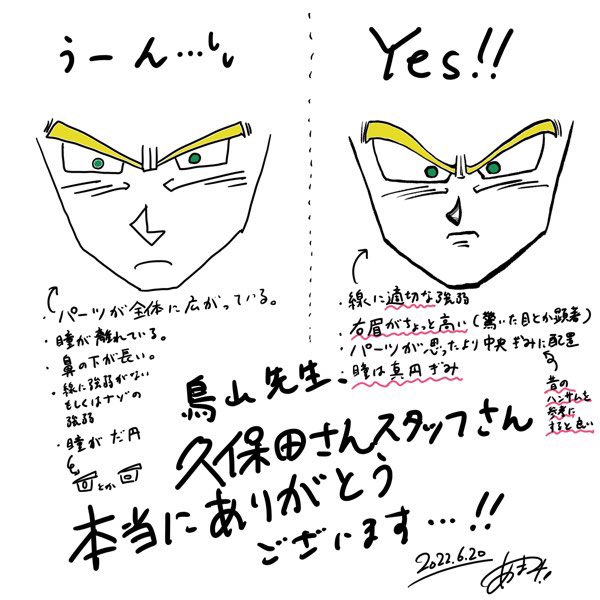 うーん…!!
Yes!!
・パーツが全体に広がっている。
・瞳が離れている。
・鼻の下が長い。
・線に強弱がない
もしくはナゾの
強弱
・瞳がだ円
とか
・線に適切な強弱
・右眉がちょっと高い(驚いた目とか顕著)
・パーツが思ったより中央ぎみに配置
・瞳は真円ぎみ
昔の
ハンサムを
参考に
すると良い
鳥山先生、
久保田さんスタッフさん
本当にありがとう
ございます…!!
2022.6.20